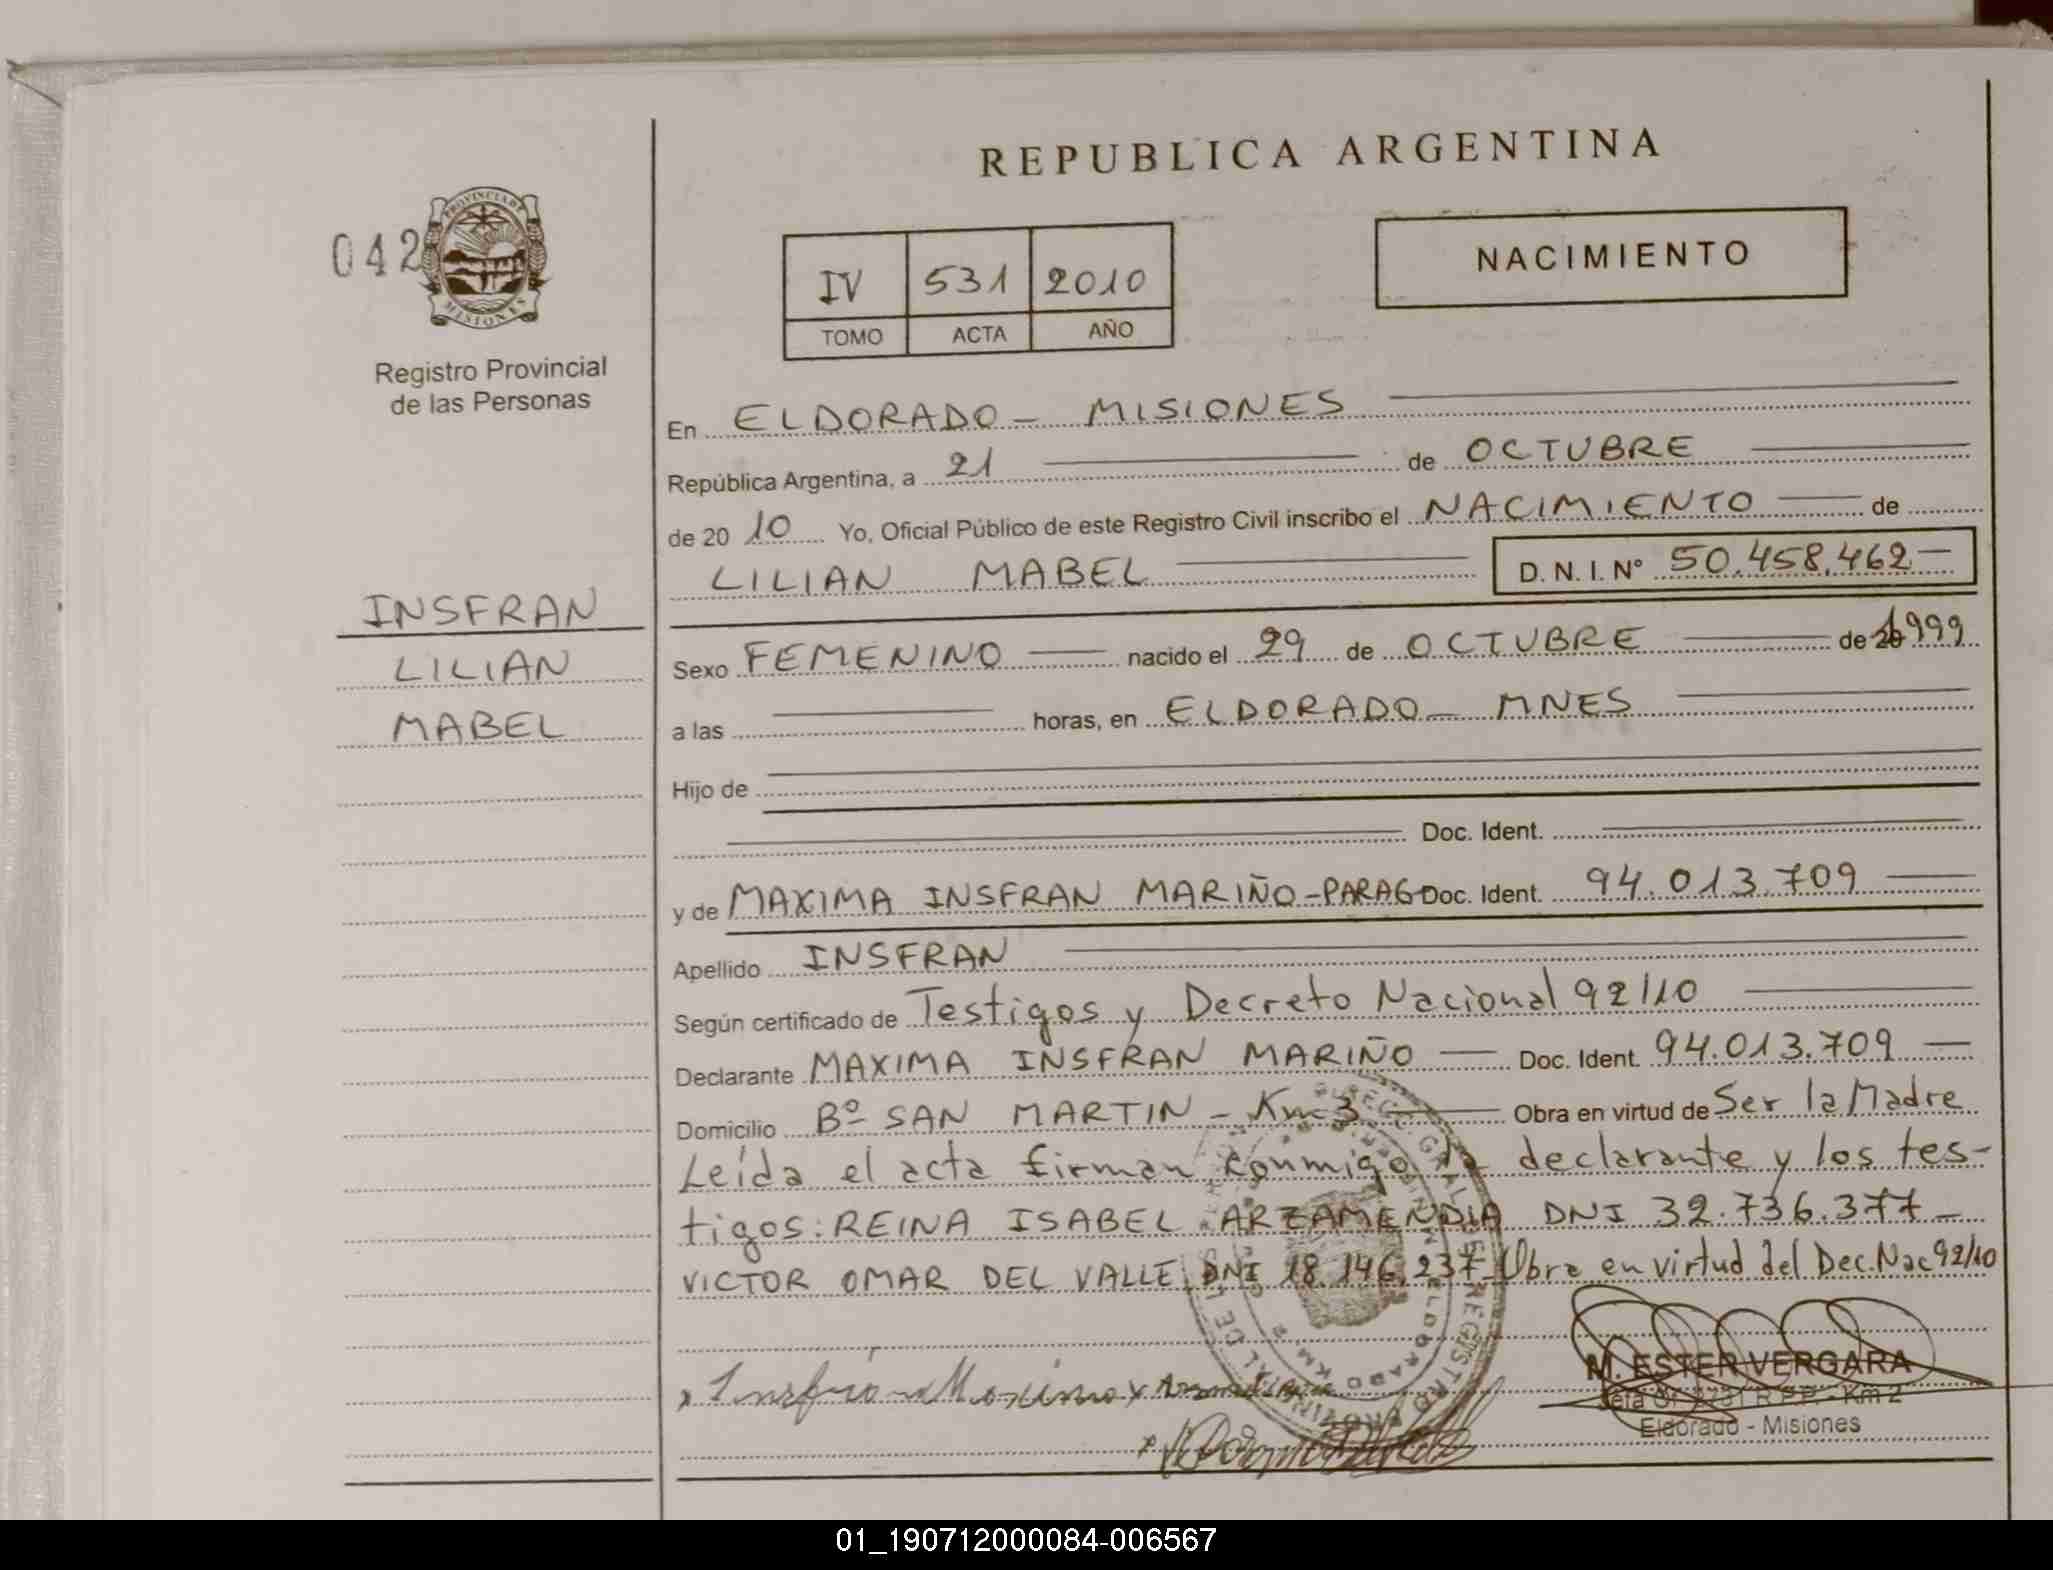 REPUBLICA ARGENTINA
042
PROVINCIA DE
MISIONES
Registro Provincial
de las Personas
IV 531 2010
TOMO ACTA AÑO
NACIMIENTO
INSFRAN
LILIAN
MABEL
En ELDORADO - MISIONES
República Argentina, a 21 de OCTUBRE
de 20 10 Yo, Oficial Público de este Registro Civil inscribo el NACIMIENTO de
LILIAN MABEL D. N. I. Nº 50.458.462
Sexo FEMENINO nacido el 29 de OCTUBRE de 1999
a las horas, en ELDORADO - MNES
Hijo de
Doc. Ident.
y de MAXIMA INSFRAN MARIÑO - PARAG Doc. Ident. 94.013.709
Apellido INSFRAN
Según certificado de Testigos y Decreto Nacional 92/10
Declarante MAXIMA INSFRAN MARIÑO Doc. Ident. 94.013.709
Domicilio Bº SAN MARTIN - Km 3 Obra en virtud de Ser la Madre
Leída el acta firman conmigo la declarante y los tes-
tigos: REINA ISABEL ARZAMENDIA DNI 32.736.377 -
VICTOR OMAR DEL VALLE DNI 18.146.237 - Obra en virtud del Dec. Nac 92/10
x Insfrán Maxima x
M. ESTER VERGARA
Eldorado - Misiones
01_190712000084-006567